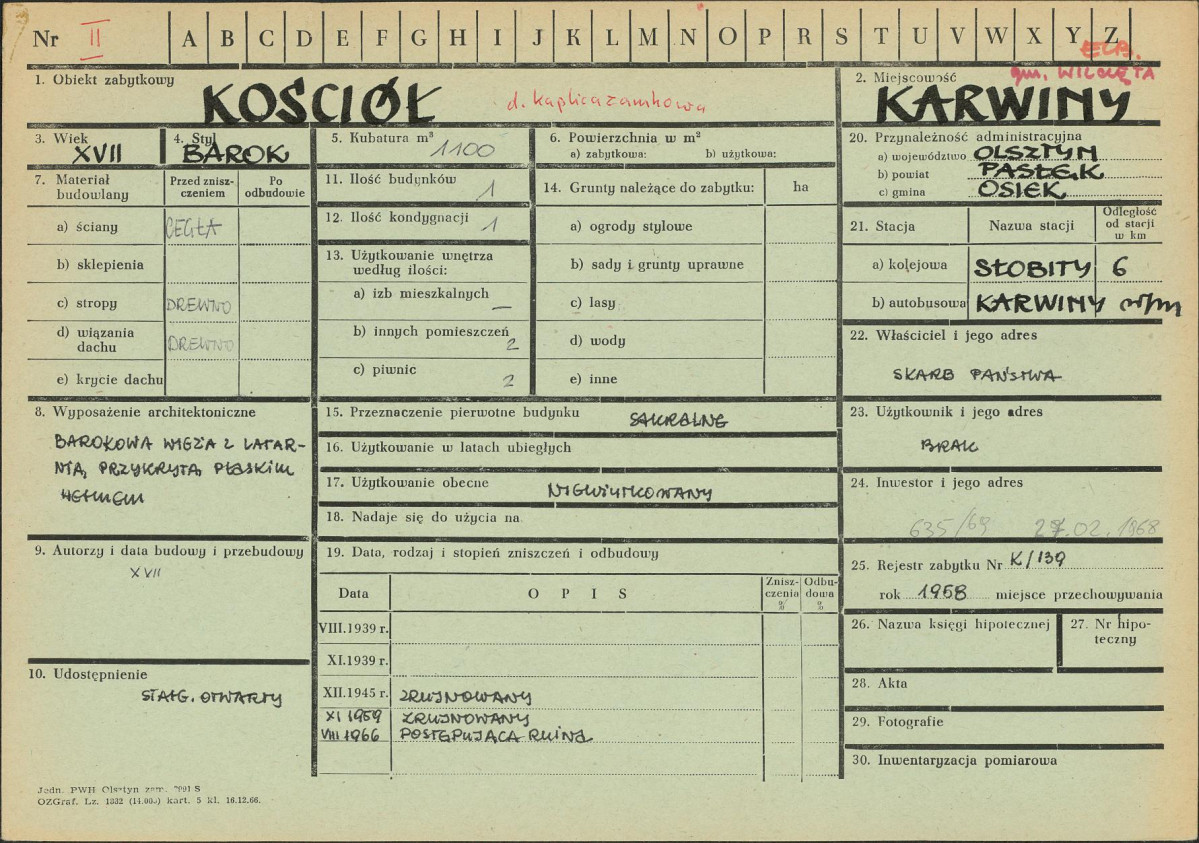 Nr II A B C D E F G H I J K L M N O P R S T U V W X Y Z
ELB.
gm. WILCZĘTA
1. Obiekt zabytkowy
KOŚCIÓŁ
d. kaplica zamkowa
2. Miejscowość
KARWINY
3. Wiek
XVII
4. Styl
BAROK
5. Kubatura m³
1100
6. Powierzchnia w m²
a) zabytkowa: b) użytkowa:
7. Materiał budowlany
Przed zniszczeniem
Po odbudowie
a) ściany CEGŁA
b) sklepienia
c) stropy DREWNO
d) wiązania dachu DREWNO
e) krycie dachu
8. Wyposażenie architektoniczne
BAROKOWA WIEŻA Z LATAR-
NIĄ, PRZYKRYTA PŁASKIM
HEŁMEM
9. Autorzy i data budowy i przebudowy
XVII
10. Udostępnienie
STAŁE. OTWARTY
11. Ilość budynków
1
12. Ilość kondygnacji
1
13. Użytkowanie wnętrza
według ilości:
a) izb mieszkalnych —
b) innych pomieszczeń
2
c) piwnic
2
14. Grunty należące do zabytku: ha
a) ogrody stylowe
b) sady i grunty uprawne
c) lasy
d) wody
e) inne
15. Przeznaczenie pierwotne budynku SAKRALNE
16. Użytkowanie w latach ubiegłych
17. Użytkowanie obecne NIEWUŻYTKOWANY
18. Nadaje się do użycia na
19. Data, rodzaj i stopień zniszczeń i odbudowy
Data O P I S Znisz-
czenia
% Odbu-
dowa
%
VIII.1939 r.
XI.1939 r.
XII.1945 r. ZRUJNOWANY
XI 1959 ZRUJNOWANY
VIII 1966 POSTĘPUJĄCA RUINA
20. Przynależność administracyjna
a) województwo OLSZTYN
b) powiat PASŁĘK
c) gmina OSIEK
21. Stacja Nazwa stacji Odległość
od stacji
w km
a) kolejowa SŁOBITY 6
b) autobusowa KARWINY w/m
22. Właściciel i jego adres
SKARB PAŃSTWA
23. Użytkownik i jego adres
BRAK
24. Inwestor i jego adres
635/69 27.02.1968
25. Rejestr zabytku Nr K/139
rok 1958 miejsce przechowywania
26. Nazwa księgi hipotecznej
27. Nr hipo-
teczny
28. Akta
29. Fotografie
30. Inwentaryzacja pomiarowa
Jedn. PWH Olsztyn zam. S
OZGraf. Lz. 1832 (14.000) kart. 5 kl. 16.12.66.